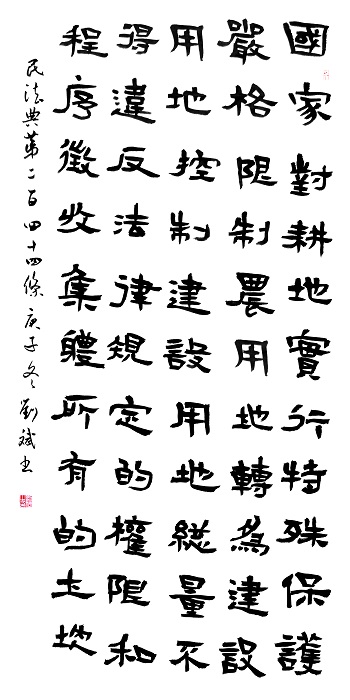 國家對耕地實行特殊保護
嚴格限制農用地轉為建設
用地控制建設用地總量不
得違反法律規定的權限和
程序徵收集體所有的土地
民法典第二百四十四條 庚子冬 劉斌書